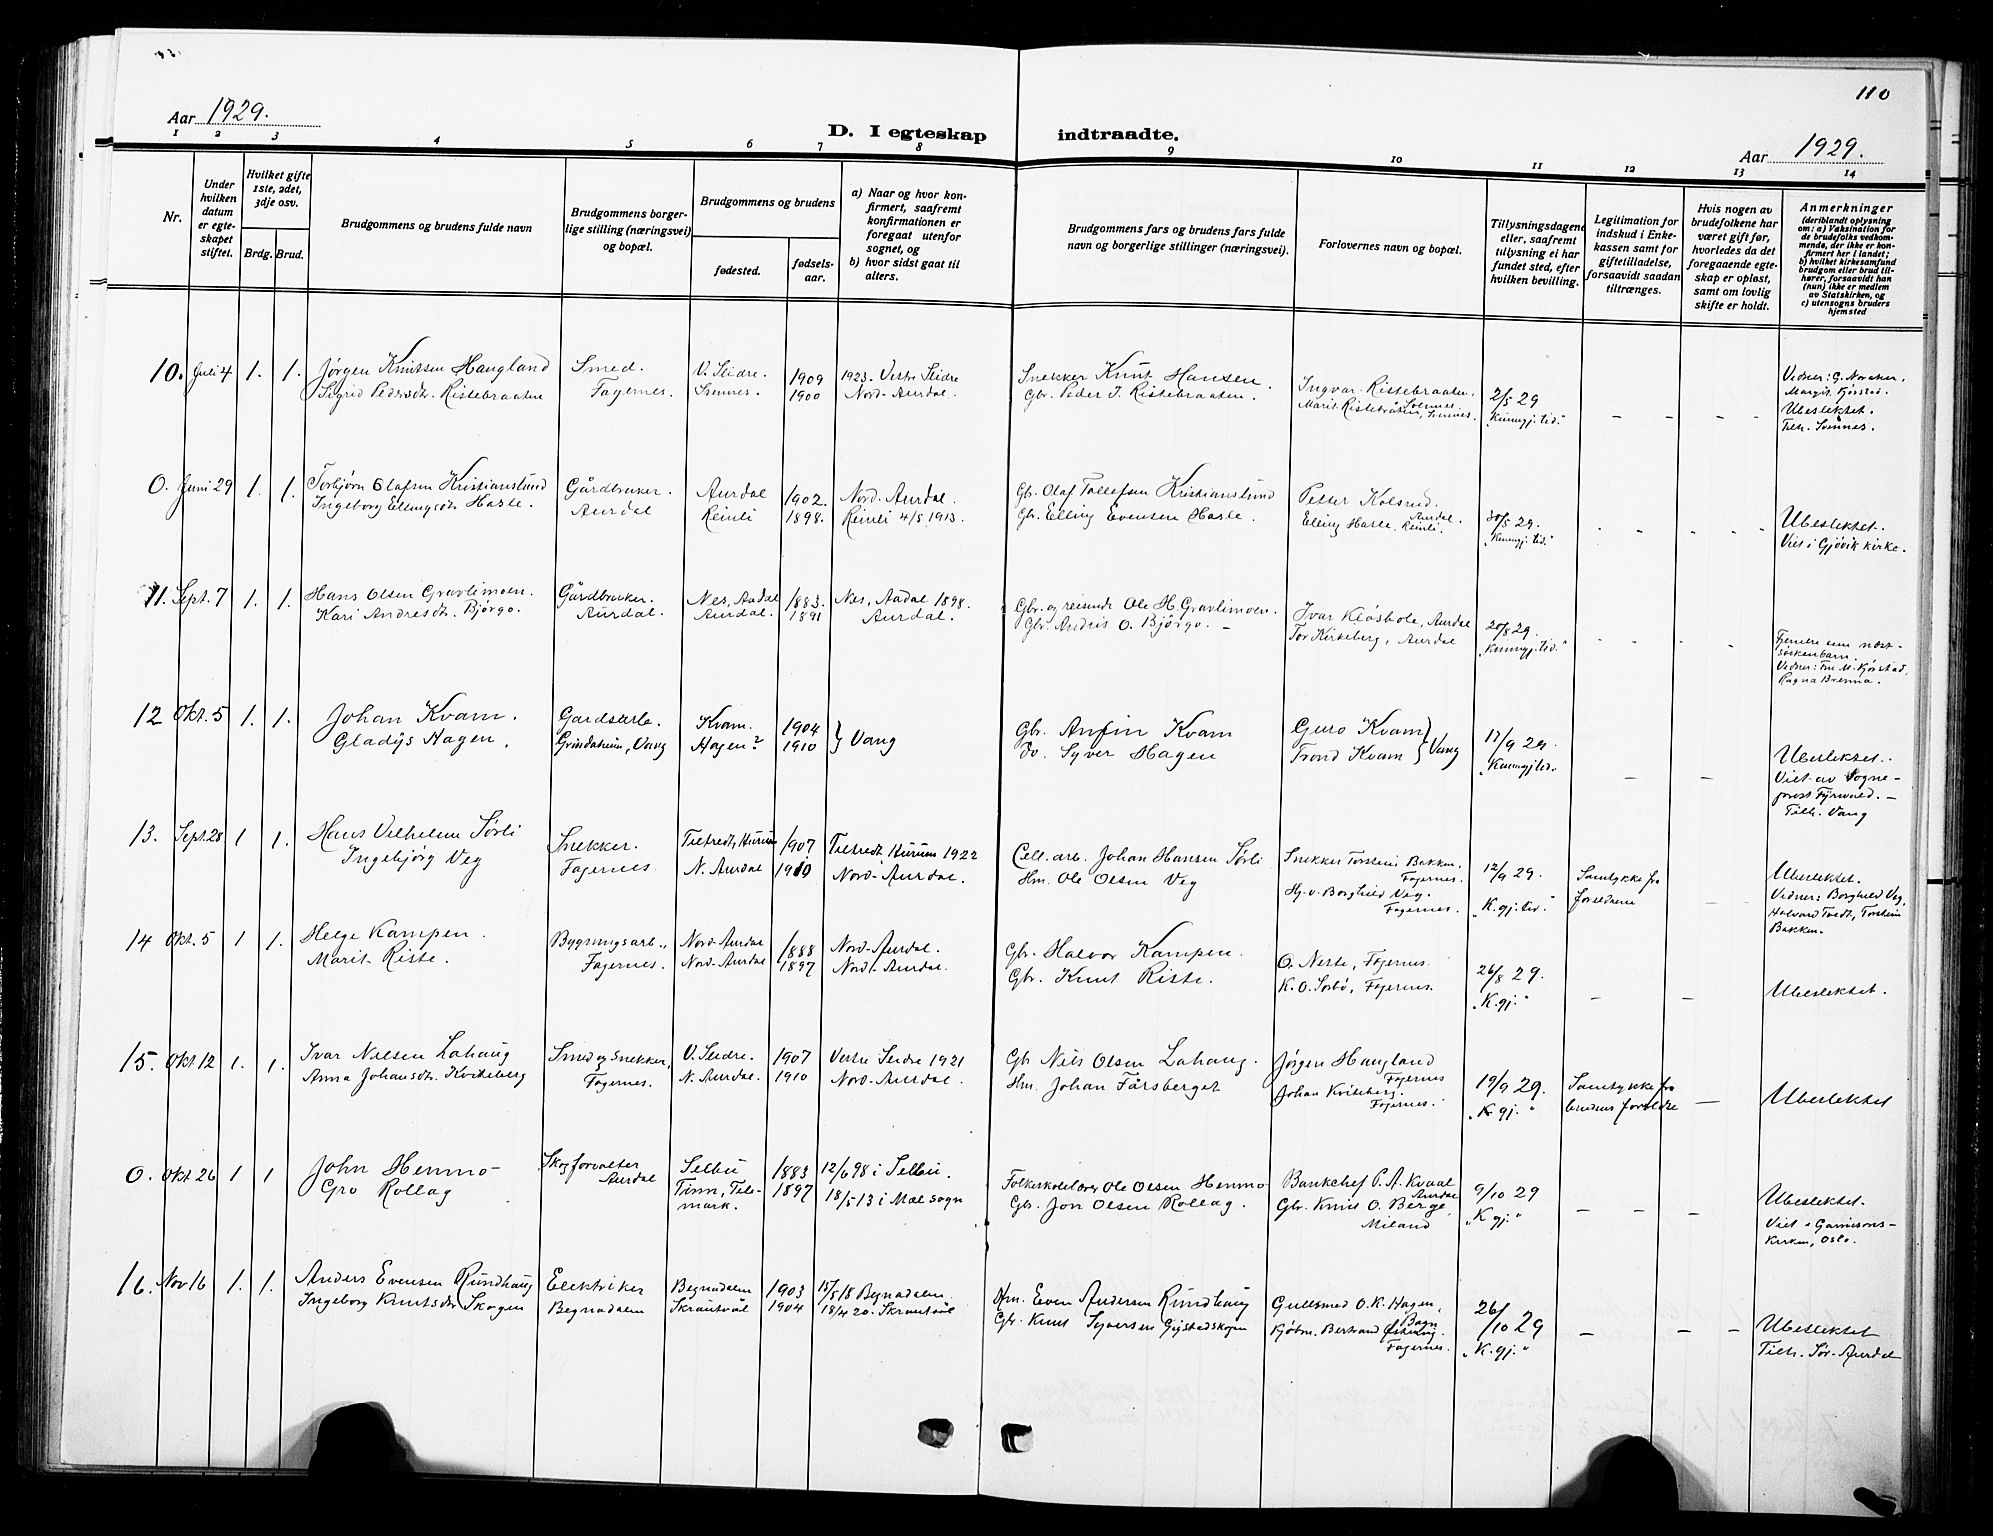 110
Aar 1929.
D. I egteskap indtraadte.
Aar 1929.
1 2 3 4 5 6 7 8 9 10 11 12 13 14
Nr.
Under hvilken datum er egteskapet stiftet.
Hvilket gifte 1ste, 2det, 3dje osv.
Brdg. Brud.
Brudgommens og brudens fulde navn
Brudgommens borgerlige stilling (næringsvei) og bopæl.
Brudgommens og brudens
fødested.
fødselsaar.
a) Naar og hvor konfirmert, saafremt konfirmationen er foregaat utenfor sognet, og
b) hvor sidst gaat til alters.
Brudgommens fars og brudens fars fulde navn og borgerlige stillinger (næringsvei).
Forlovernes navn og bopæl.
Tillysningsdagene eller, saafremt tillysning ei har fundet sted, efter hvilken bevilling.
Legitimation for indskud i Enkekassen samt for giftetilladelse, forsaavidt saadan tiltrænges.
Hvis nogen av brudefolkene har været gift før, hvorledes da det foregaaende egteskap er opløst, samt om lovlig skifte er holdt.
Anmerkninger
(deriblandt oplysning om: a) Vaksination for de brudefolks vedkommende, der ikke er konfirmert her i landet;
b) hvilket kirkesamfund brudgom eller brud tilhører, forsaavidt han (hun) ikke er medlem av Statskirken, og
c) utensogns bruders hjemsted
10. Juli 4 1. 1. Jørgen Knutsen Haugland Smed. V. Slidre. 1909 1923. Vestre Slidre Snekker Knut Hansen. Ingvar Ristebraaten, 2/5 29 Vidner: G. Noraker.
Sigrid Pedersdtr. Ristebraaten Fagernes. Svennes. 1900 Nord-Aurdal. Gbr. Peder I. Ristebraaten. Svennes. Marit Ristebråten, Svennes. "Kunngj. tid." – – – – Margit Kjørstad.
Ubeslektet.
Tilh. Svennes.
0. Juni 29 1. 1. Torbjørn Olafsen Kristianslund Gårdbruker. Aurdal 1902. Nord-Aurdal. Gbr. Olaf Tollefsen Kristianslund Petter Kolsrud, Aurdal. 30/5 29.
Ingeborg Ellingsdtr. Hasle. Aurdal Reinli 1898. Reinli 4/5 1913. Gbr. Elling Evensen Hasle. Elling Hasle, Reinli. "Kunngj. tid." Ubeslektet.
Viet i Gjøvik kirke.
11. Sept. 7 1. 1. Hans Olsen Gravlimoen. Gårdbruker. Nes, Aadal 1883. Nes, Aadal 1898. Gbr. og reisende Ole H. Gravlimoen. Ivar Kløsbøle, Aurdal 20/8 29.
Kari Andresdtr. Bjørgo. Aurdal. Aurdal. 1891 Aurdal. Gbr. Andris O. Bjørgo. – Tor Kirkeberg, Aurdal "Kunngj. tid." Fjernere enn næst-
søskenbarn.
Vidner: Fru M. Kjørstad,
Ragna Brenna.
12 Okt. 5 1. 1. Johan Kvam. Gardsarb. Kvam. 1904 } Vang Gbr. Anfin Kvam Guro Kvam } Vang 17/9 29.
Gladys Hagen. Grindaheim, Vang Hagen? 1910 do. Syver Hagen Trond Kvam "Kunngj. tid." – – Ubeslektet.
Viet av Sogne-
prest Fyrwald. –
Tilh. Vang
13. Sept. 28 1 1. Hans Vilhelm Sørli Snekker. Tilfredt, Hurum 1907 Tilfredt, Hurum 1922 Cell. arb. Johan Hansen Sørli Snekker Torstein Bakken, Fagernes. 12/9 29. Samtykke fra Ubeslektet.
Ingebjørg Veg Fagernes N. Aurdal. 1910 Nord-Aurdal. Hm. Ole Olsen Veg Hj. v. Borghild Veg. Fagernes. "K. gj. tid." foreldrene – Vidner: Borghild Veg,
Halvard Tveit, Torstein
Bakken.
14 Okt. 5 1 1. Helge Kampen. Bygningsarb., Nord-Aurdal 1888 Nord-Aurdal. Gbr. Halvor Kampen. O. Nerle, Fagernes. 26/8 29.
Marit Riste. Fagernes. Nord-Aurdal 1897 Nord-Aurdal. Gbr. Knut Riste. K. O. Sørbø, Fagernes. "K. gj." – – Ubeslektet.
15. Okt 12 1. 1. Ivar Nilsen Lohaug Smed og snekker, V. Slidre. 1907 Vestre Slidre 1921 Gbr Nils Olsen Lohaug. Jørgen Haugland Fagernes 19/9 29. Samtykke fra
Anna Johansdtr. Kviteberg Fagernes. N. Aurdal. 1910 Nord-Aurdal. Hm. Johan Fårsberget Johan Kviteberg. Fagernes. "K. gj." brudens foreldre – Ubeslektet
0. Okt 26 1 1 John Hemmo Skogforvalter Selbu 1883 12/6 98 i Selbu. Folkeskolelærer Ole Olsen Hemmo Bankchef P. A. Kvaal Aurdal 9/10 29
Gro Rollag Aurdal Tinn, Tele-
mark. 1897 18/5-13 i Mæl sogn Gbr. Jon Olsen Rollag. Gbr. Knut O. Berge, Miland "K gj." – – – Ubeslektet.
Viet i Garnisons-
kirken, Oslo.
16. Nov 16 1. 1. Anders Evensen Rundhaug Elektriker Begnadalen 1903 15/5 18 Begnadalen. Hm. Even Andersen Rundhaug Gullsmed O. K. Hagen, Bagn 26/10 29
Ingeborg Knutsdtr Skogen Begnadalen Skrautvål 1904 18/4 20. Skrautvål Gbr. Knut Syversen Gigstadskogen Kjøbm. Bertrand Østensvig. Fagernes. "K. gj." – – – Ubeslektet
Tilh. Sør-Aurdal